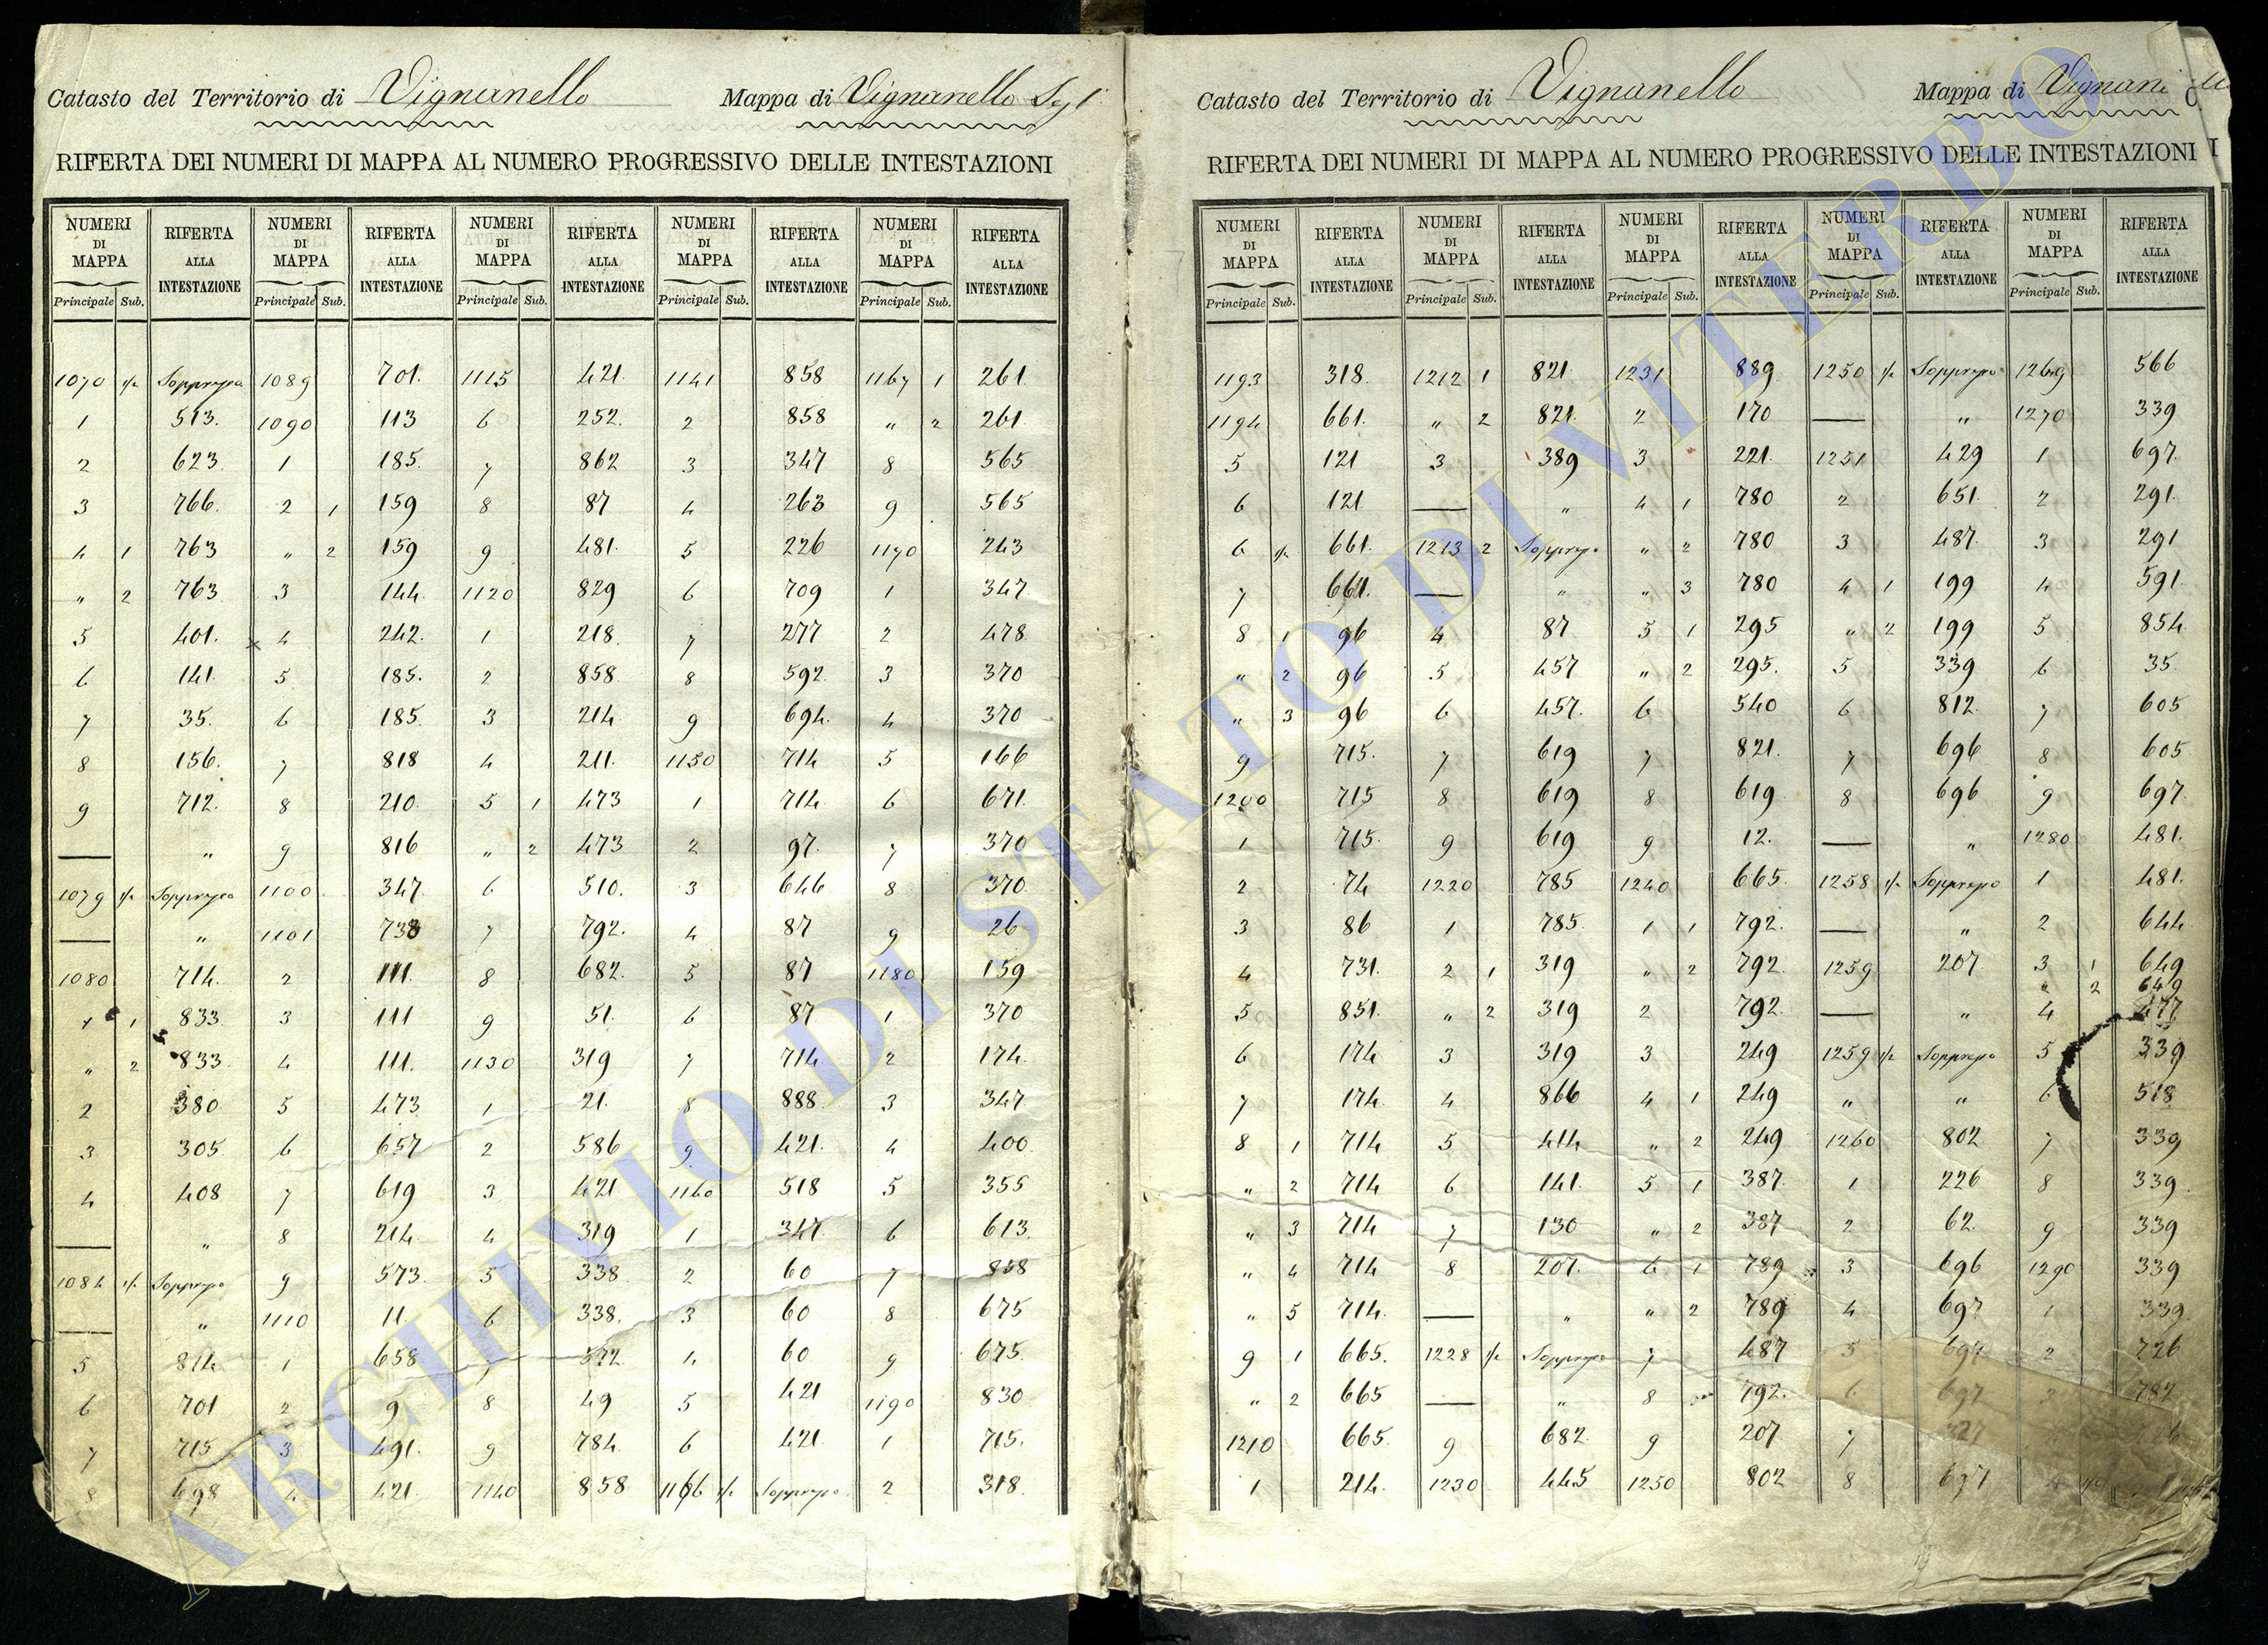 Catasto del Territorio di Vignanello Mappa di Vignanello Sez I
RIFERTA DEI NUMERI DI MAPPA AL NUMERO PROGRESSIVO DELLE INTESTAZIONI
NUMERI DI MAPPA RIFERTA ALLA INTESTAZIONE NUMERI DI MAPPA RIFERTA ALLA INTESTAZIONE NUMERI DI MAPPA RIFERTA ALLA INTESTAZIONE NUMERI DI MAPPA RIFERTA ALLA INTESTAZIONE NUMERI DI MAPPA RIFERTA ALLA INTESTAZIONE
Principale Sub. Principale Sub. Principale Sub. Principale Sub. Principale Sub.
1070 1/2 Soppresso 1089 701. 1115 421. 1141 858 1167 1 261
1 513. 1090 113 6 252. 2 858 " 2 261
2 623. 1 185. 7 862 3 347 8 565
3 766. 2 1 159 8 87 4 263 9 565
4 1 763 " 2 159 9 481. 5 226 1170 243
" 2 763 3 144 1120 829 6 709 1 347
5 401. 4 242. 1 218 7 277 2 478
6 141 5 185. 2 858 8 592 3 370
7 35. 6 185 3 214 9 694. 4 370
8 156. 7 818 4 211. 1150 714 5 166
9 712. 8 210 5 1 473 1 714 6 671
— " 9 816 " 2 473 2 97. 7 370
1079 1/2 Soppresso 1100 347 6 510. 3 646 8 370
— " 1101 738 7 792. 4 87 9 26
1080 714. 2 111. 8 682. 5 87 1180 159
1 1 833 3 111 9 51. 6 87 1 370
" 2 833 4 111. 1130 319 7 714 2 174
2 380 5 473 1 21. 8 888 3 347
3 305 6 657 2 586 9 421. 4 400
4 408 7 619 3 421 1160 518 5 355
— " 8 214. 4 319 1 347 6 613.
1084 1/2 Soppresso 9 573 5 338 2 60 7 858
— " 1110 11. 6 338. 3 60 8 675
5 814 1 658 7 572 4 60 9 675
6 701 2 9 8 49 5 421 1190 830
7 715 3 491. 9 784 6 421 1 715.
8 498 4 421 1140 858 1166 1/2 Soppresso 2 318
Catasto del Territorio di Vignanello Mappa di Vignanello
RIFERTA DEI NUMERI DI MAPPA AL NUMERO PROGRESSIVO DELLE INTESTAZIONI
NUMERI DI MAPPA RIFERTA ALLA INTESTAZIONE NUMERI DI MAPPA RIFERTA ALLA INTESTAZIONE NUMERI DI MAPPA RIFERTA ALLA INTESTAZIONE NUMERI DI MAPPA RIFERTA ALLA INTESTAZIONE NUMERI DI MAPPA RIFERTA ALLA INTESTAZIONE
Principale Sub. Principale Sub. Principale Sub. Principale Sub. Principale Sub.
1193 318. 1212 1 821 1231 889 1250 1/2 Soppresso 1269 566
1194 661. " 2 821. 2 170 — " 1270 339
5 121 3 389 3 221. 1251 429 1 697.
6 121 — " 4 1 780 2 651. 2 291.
6 1/2 661. 1213 2 Soppresso " 2 780 3 487. 3 291
7 661. — " " 3 780 4 1 199 4 591
8 1 96 4 87 5 1 295 " 2 199 5 854
" 2 96 5 457 " 2 295. 5 339 6 35.
" 3 96 6 457. 6 540 6 812. 7 605
9 715. 7 619 7 821. 7 696 8 605
1200 715 8 619 8 619 8 696 9 697.
1 715. 9 619 9 12. — " 1280 481.
2 74 1220 785 1240 665. 1258 1/2 Soppresso 1 481.
3 86 1 785. 1 1 792. — " 2 644
4 731. 2 1 319 " 2 792. 1259 207 3 1 649
" 2 649
5 851. " 2 319 2 792. — " 4 477
6 174 3 319 3 249 1259 1/2 Soppresso 5 339
7 174 4 866 4 1 249 " " 6 518
8 1 714 5 414 " 2 249 1260 802 7 339
" 2 714 6 141. 5 1 387. 1 226 8 339
" 3 714 7 130 " 2 387 2 62. 9 339
" 4 714 8 207. 6 1 789 3 696 1290 339
" 5 714. — " " 2 789 4 697 1 339
9 1 665. 1228 1/2 Soppresso 7 487 5 2 726
" 2 665 — " 8 792. 6 697 782
1210 665. 9 682. 9 207 7
1 214. 1230 445 1250 802 8 697
ARCHIVIO DI STATO DI VITERBO